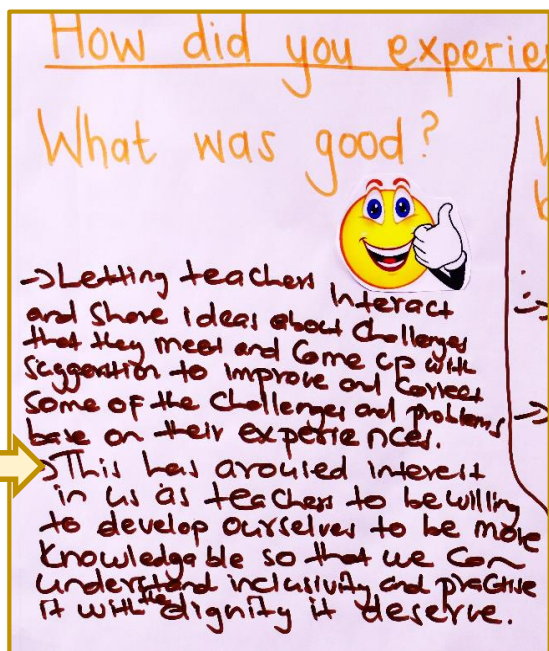 How did you experie
What was good?
→ Letting teachers interact
and share ideas about challenges
that they meet and come up with
suggestion to improve and correct
some of the challenges and problems
base on their experiences.
→ This has aroused interest
in us as teachers to be willing
to develop ourselves to be more
knowledgable so that we can
understand inclusivity and practise
it with the dignity it deserve.